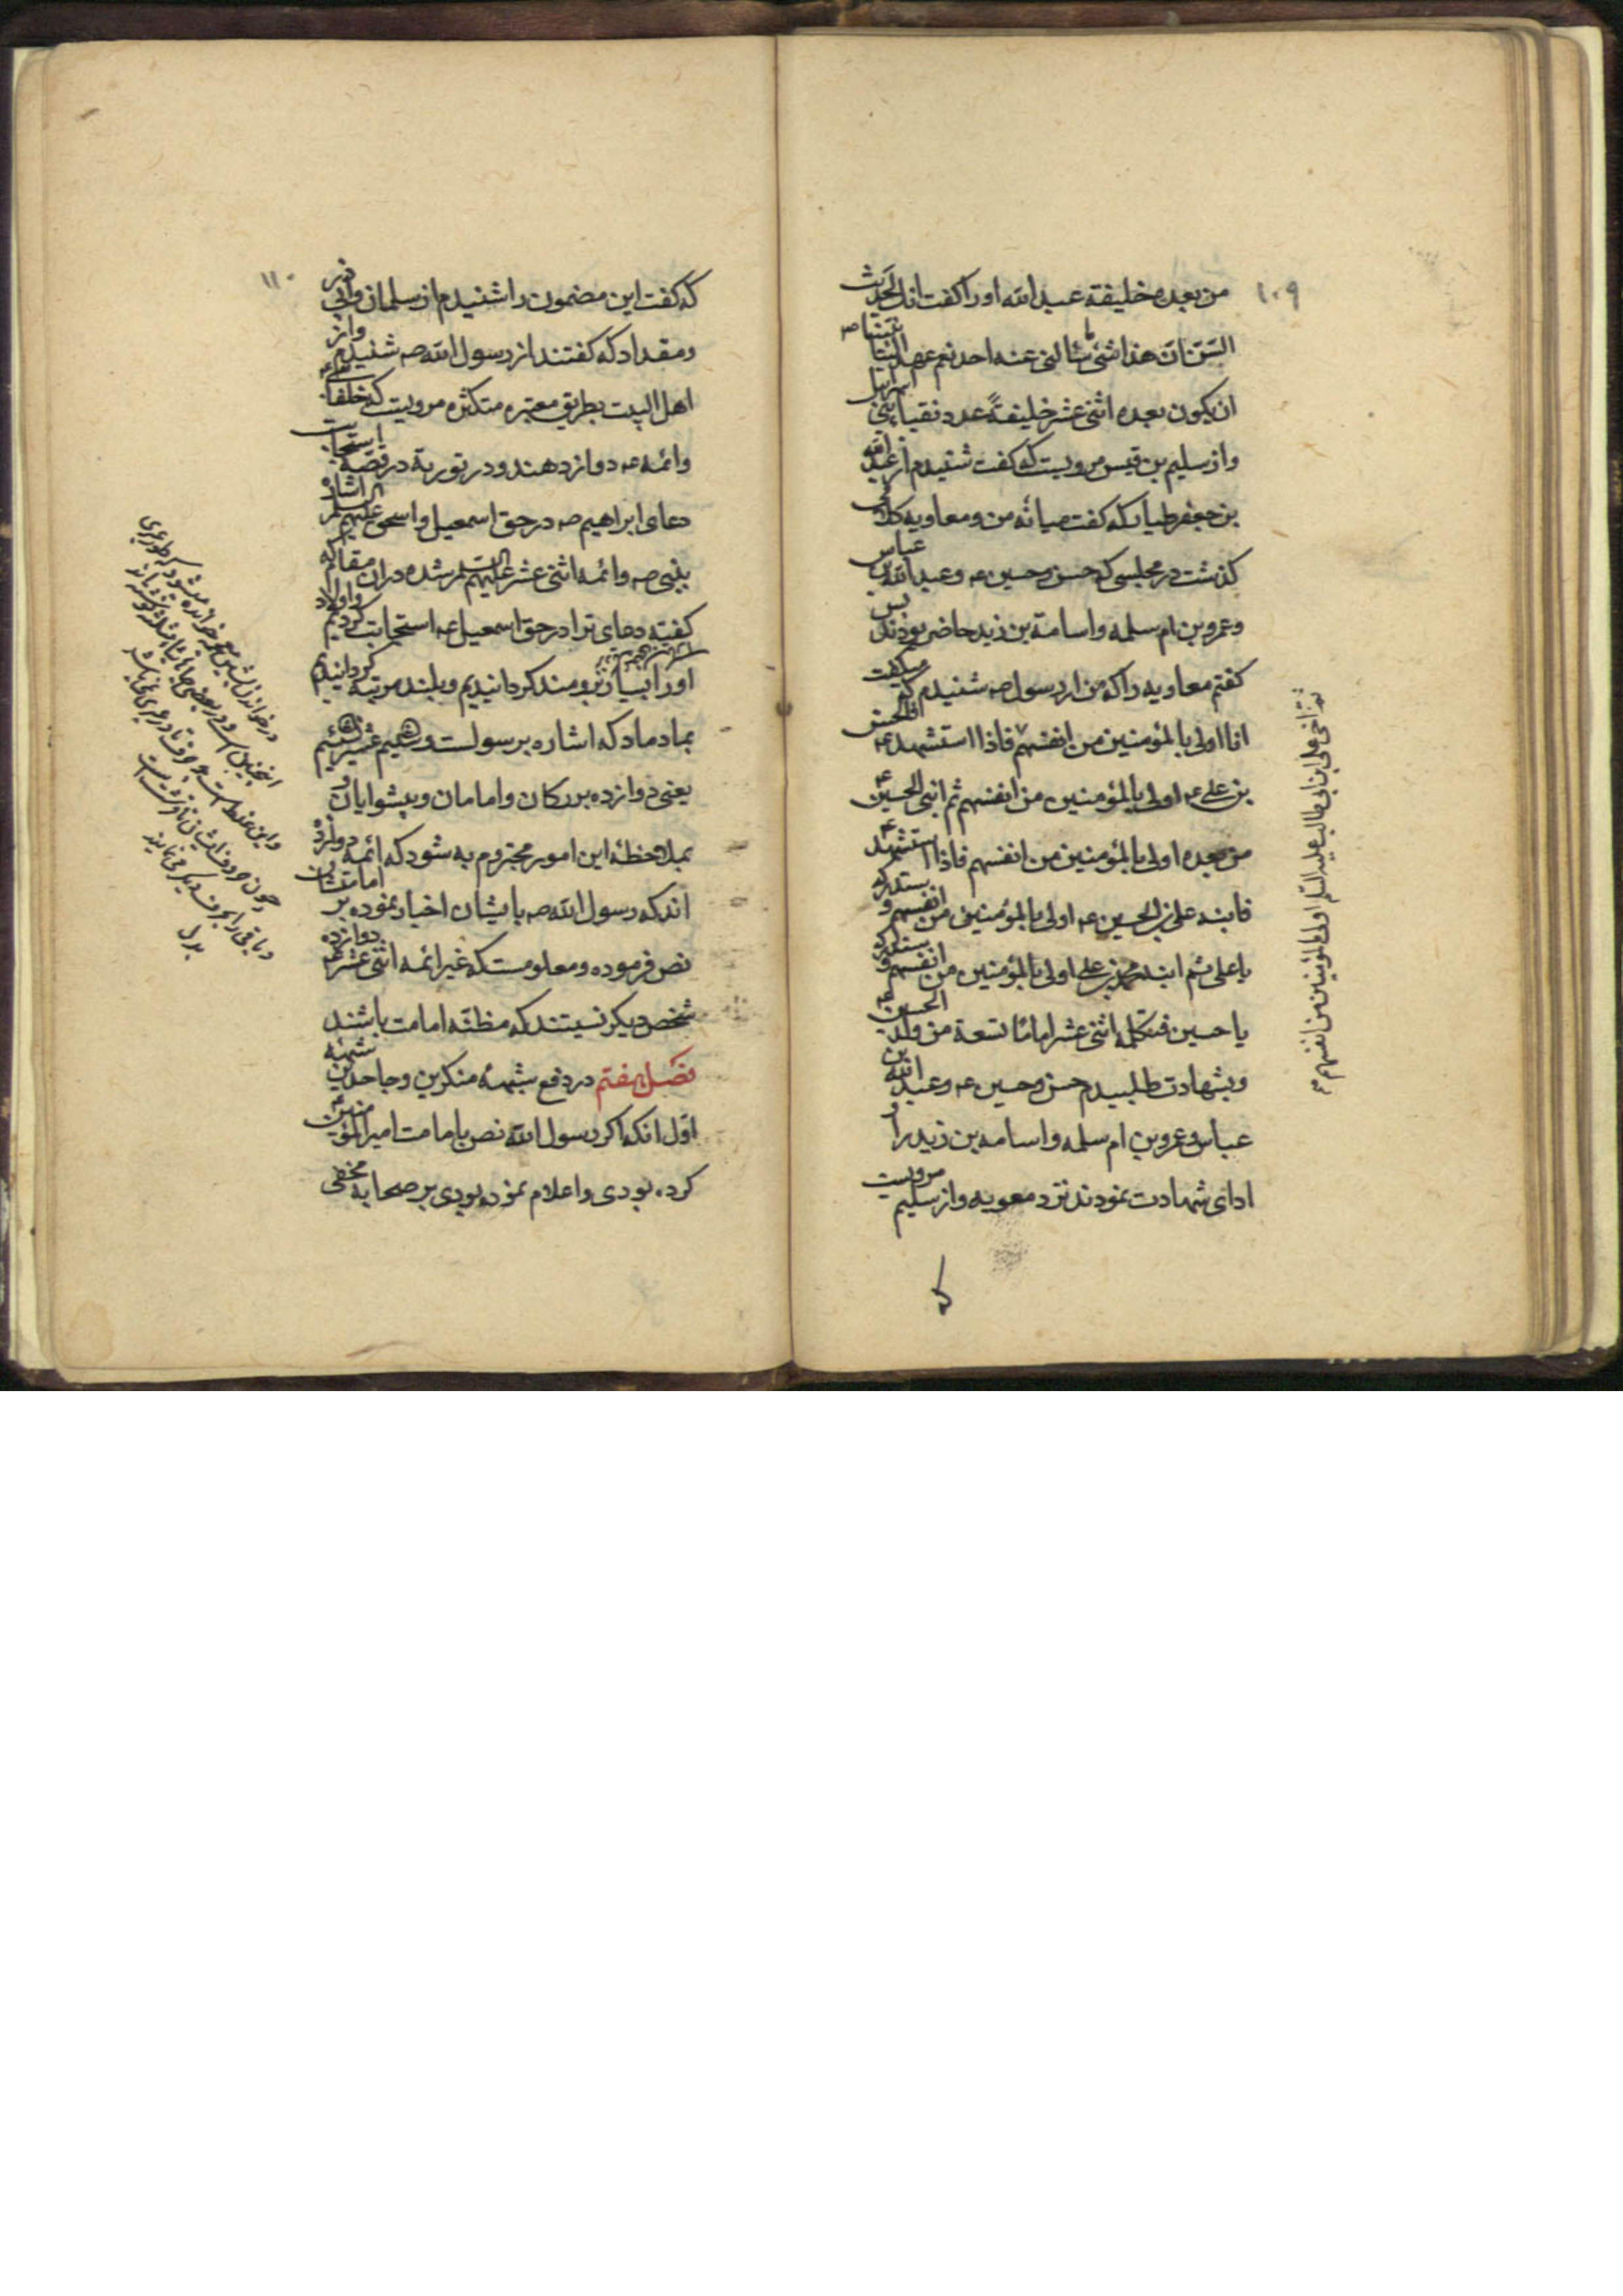 ۱۰۹
من بعده خلیفة عبدالله اورا کفت انک لحدیث
السّن انّ هذا شئ ما سألنی عنه احد نعم عهد الینا نبیّنا صه
ان یکون بعده اثنی عشر خلیفةً عدد نقباء بنی اسرائیل
واز سلیم بن قیس مرویست که کفت شنیدم از عبدالله
بن جعفر طیار که کفت میانه من و معاویه کلامی
کذشت در مجلسی که حسن و حسین عه و عبدالله بن عباس
وعمرو بن ام سلمه واسامة بن زید حاضر بودند پس
کفتم معاویه را که من از رسول صه شنیدم که میکفت
انا اولی بالمؤمنین من انفسهم فاذا استشهد عه فالحسن
بن علی عه اولی بالمؤمنین من انفسهم ثم ابنی الحسین عه
من بعده اولی بالمؤمنین من انفسهم فاذا استشهد عه
فابنه علی بن الحسین عه اولی بالمؤمنین من انفسهم و ستدرکه
یا علی ثم ابنه محمد بن علی اولی بالمؤمنین من انفسهم و ستدرکه
یا حسین فتکمله اثنی عشر اماما تسعة من ولد الحسین عه
وبشهادت طلبیدم حسن وحسین عه وعبدالله بن
عباس وعمرو بن ام سلمه واسامه بن زید را و
ادای شهادت نمودند نزد معویه واز سلیم مرویست
که
ثم اخی علی ابن ابی طالب علیه السلم اولی بالمؤمنین من انفسهم
۱۱۰
که کفت این مضمون را شنیدم از سلمان وابی ذر
ومقداد که کفتند از رسول الله صه شنیدیم واز
اهل البیت بطریق معتبره متکثره مرویست که خلفای
وائمه عه دوازدهند ودر توریة در قصهٔ استجابت
دعای ابراهیم صه در حق اسمعیل واسحق علیهم السلم اشاره
بنبی صه وائمه اثنی عشر علیهم السلم شده دران مقاله که
کفته دعای ترا در حق اسمعیل عه استجابت کردیم واولاد
اورا بسیار نیرومند کردانیدیم وبلند مرتبه کردانیدیم
بمادماد که اشاره برسولست وشنیم عشر نسیئیم
یعنی دوازده بزرکان وامامان وپیشوایان و
بملاحظهٔ این امور مجزوم به شود که ائمه دوازده
اند که رسول الله صه بایشان اخبار نموده بر امامتشان
نص فرموده ومعلومست که غیر ائمه اثنی عشر عه دوازده
شخص دیکر نیستند که مظنّه امامت باشند
فصل هفتم در دفع شبههٔ منکرین وجاحدین شبهه
اوّل انکه اکر رسول الله نص بامامت امیرالمؤمنین عه
کرده بودی واعلام نموده بودی بر صحابه مخفی